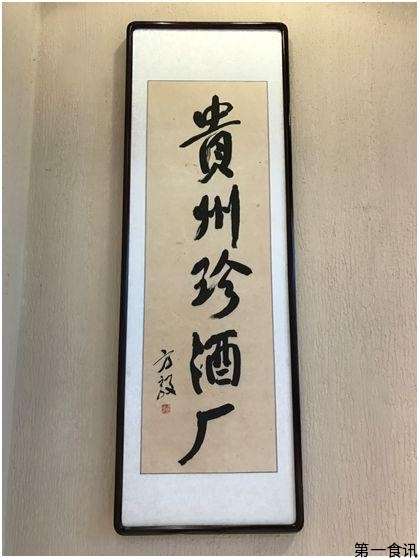 貴州珍酒厂
方毅
第一食讯